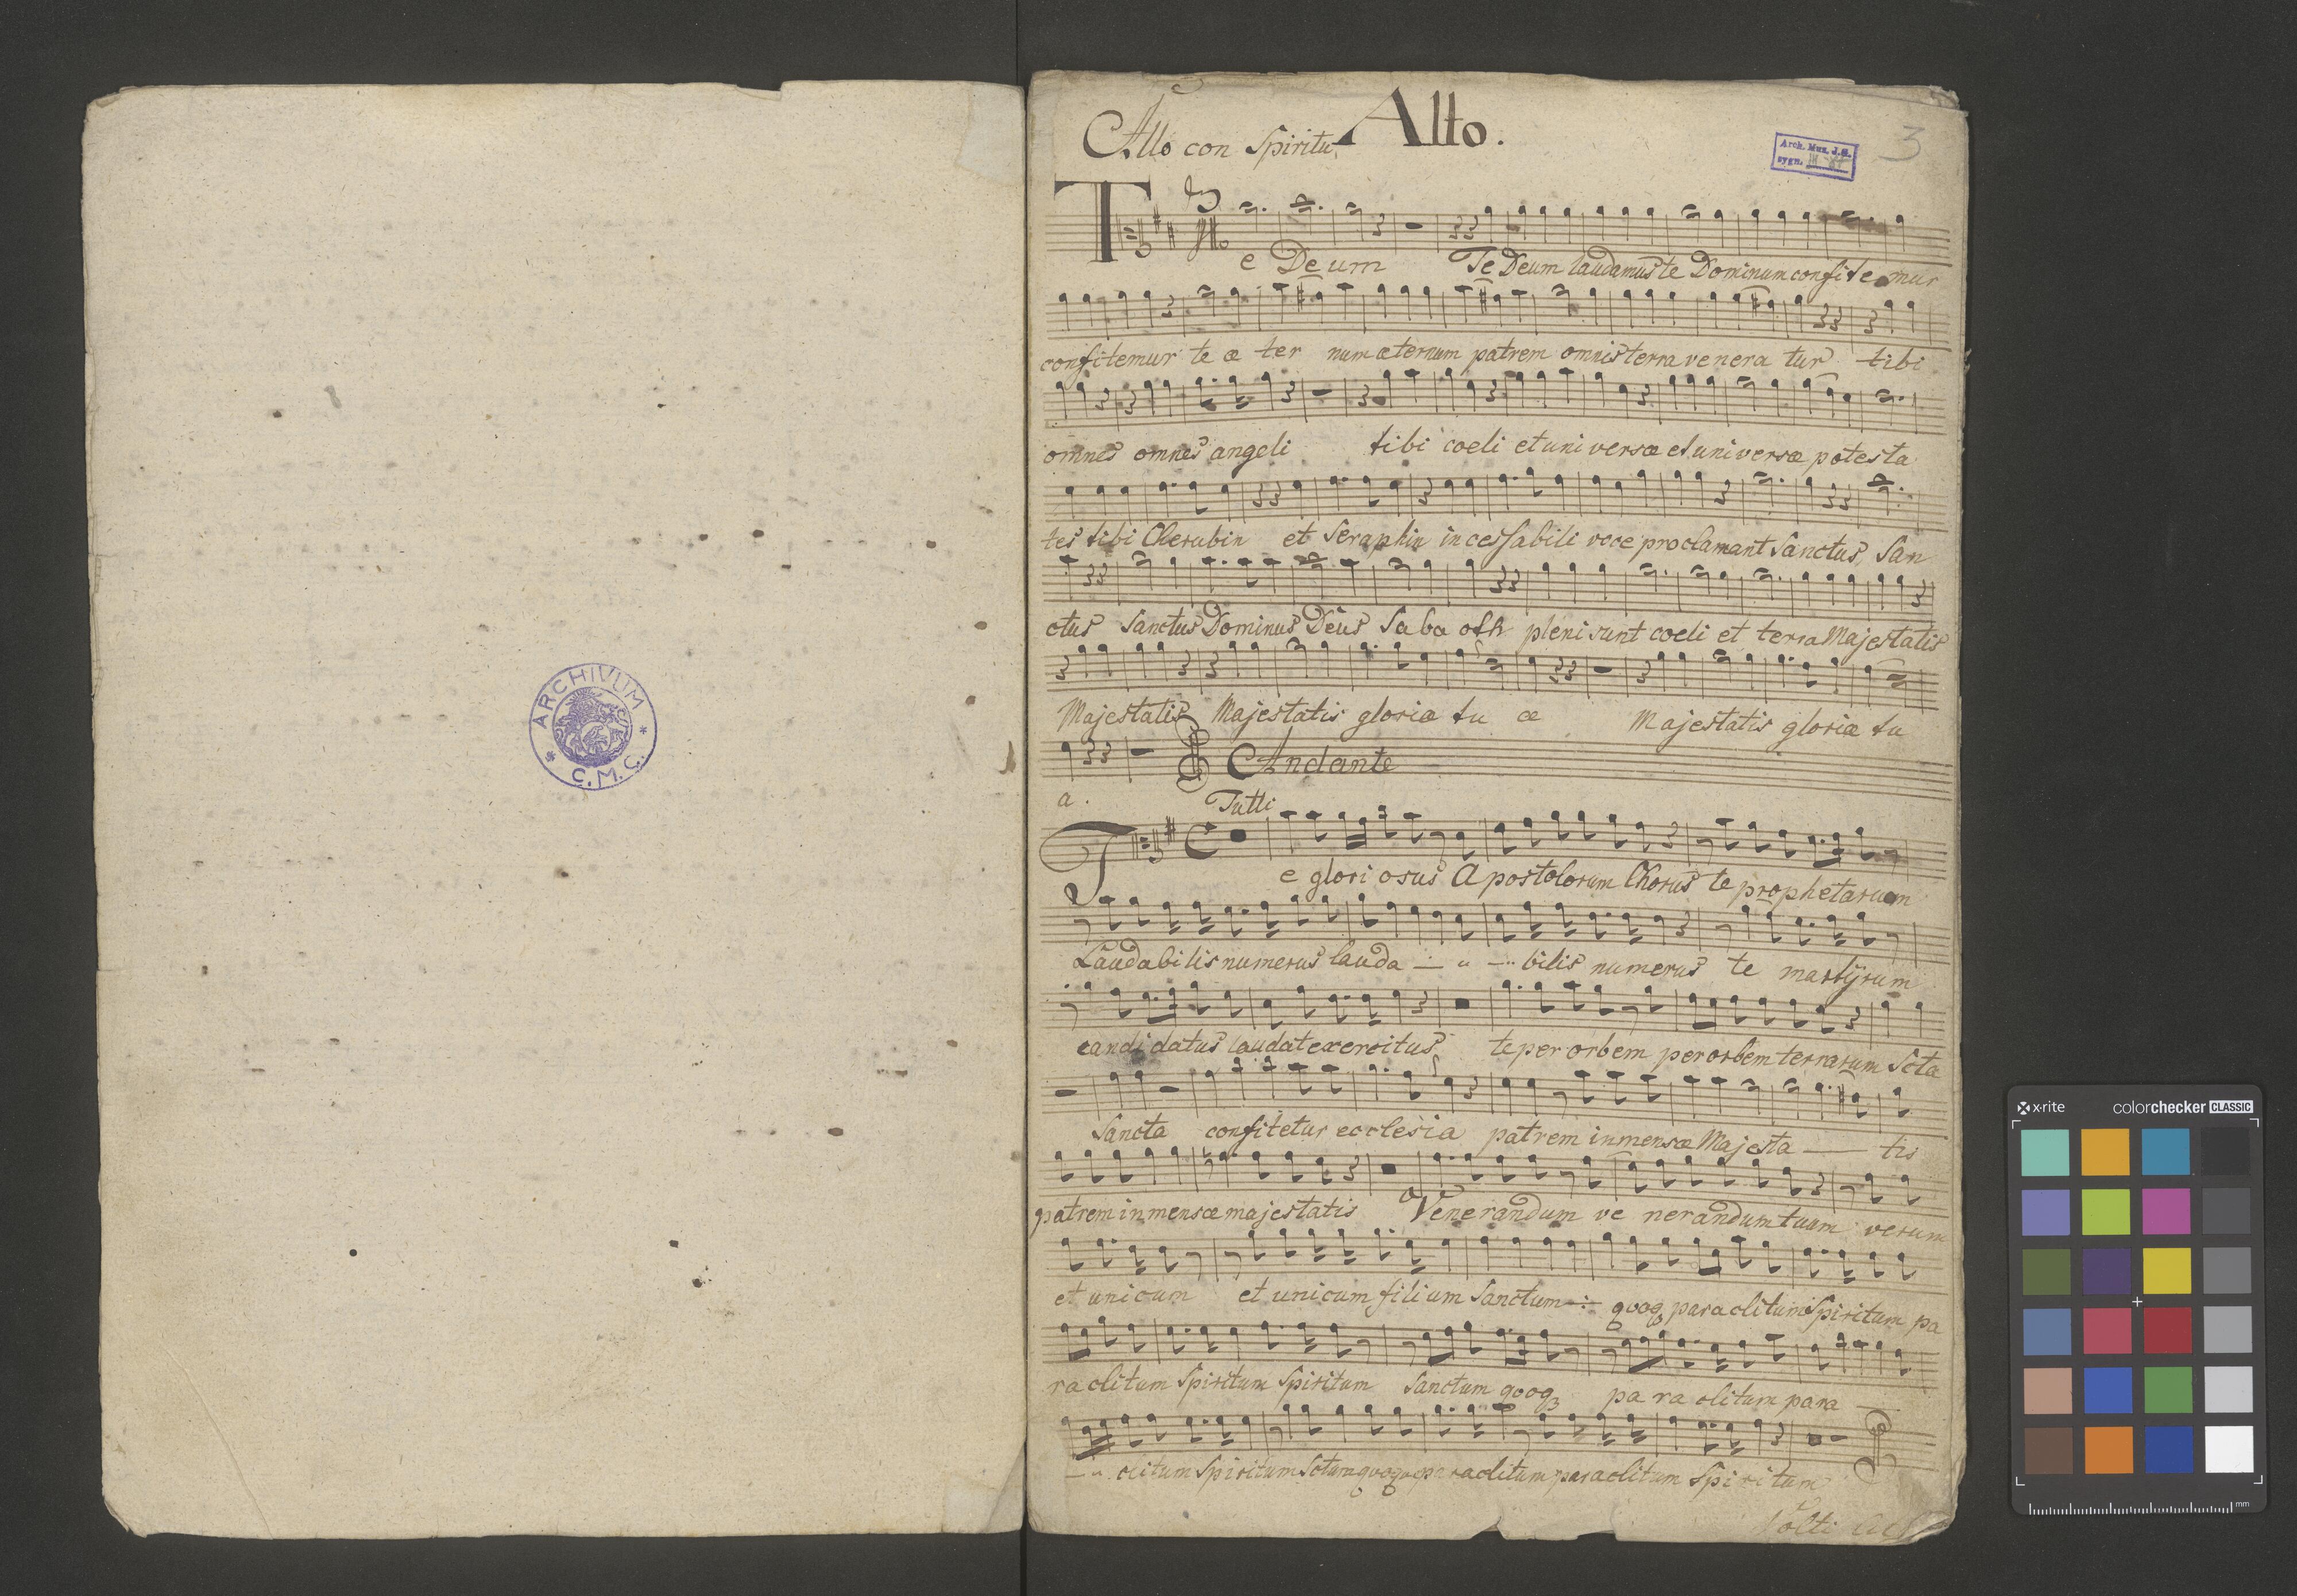 ARCHIVUM
* C.M.C. *
Alto.
Allo con Spiritu
3
Arch. Muz. J.G.
sygn. III
Te Deum Te Deum laudamus te Dominum confitemur
confitemur te æ ter num æternum patrem omnis terra venera tur tibi
omnes omnes angeli tibi coeli et uni versæ et universæ potesta
tes tibi Cherubin et Seraphin incessabili voce proclamant Sanctus, San
ctus Sanctus Dominus Deus Saba oth pleni sunt coeli et terra Majestatis
Majestatis Majestatis gloriæ tu æ Majestatis gloriæ tu
Andante
a.
Tutti
Te glori osus Apostolorum Chorus te prophetarum
Laudabilis numerus lauda - " - bilis numerus te martÿrum
candi datus laudat exercitus te per orbem per orbem terrarum Scta
Sancta confitetur ecclesia patrem inmensæ Majesta — tis
patrem inmensæ majestatis Venerandum ve nerandum tuum verum
et unicum et unicum filium Sanctum quoq paraclitum Spiritum pa
raclitum Spiritum Spiritum Sanctum quoq pa ra clitum para —
- " clitum Spiritum Sctum quoque paraclitum paraclitum Spiritum
Volti
x-rite
colorchecker CLASSIC
mm